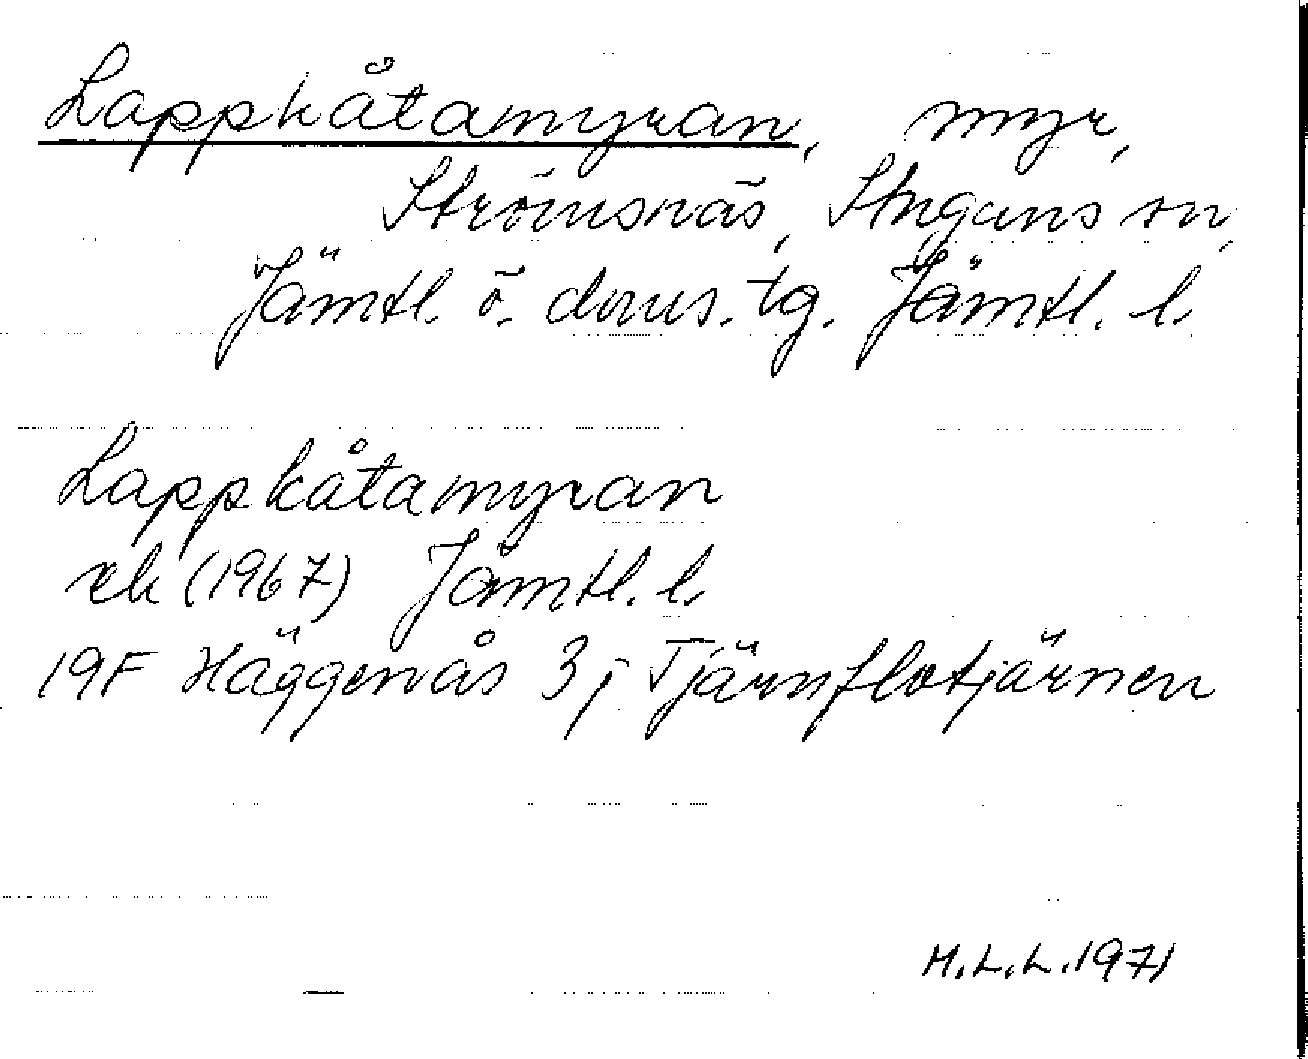 Lappkåtamyran, myr,
Strömsnäs, Stuguns sn,
Jämtl. ö. doms. tg. Jämtl. l.
Lappkåtamyran
ek (1967) Jämtl. l.
19F Häggenås 3j Tjärnflotjärnen
M.L.L. 1971